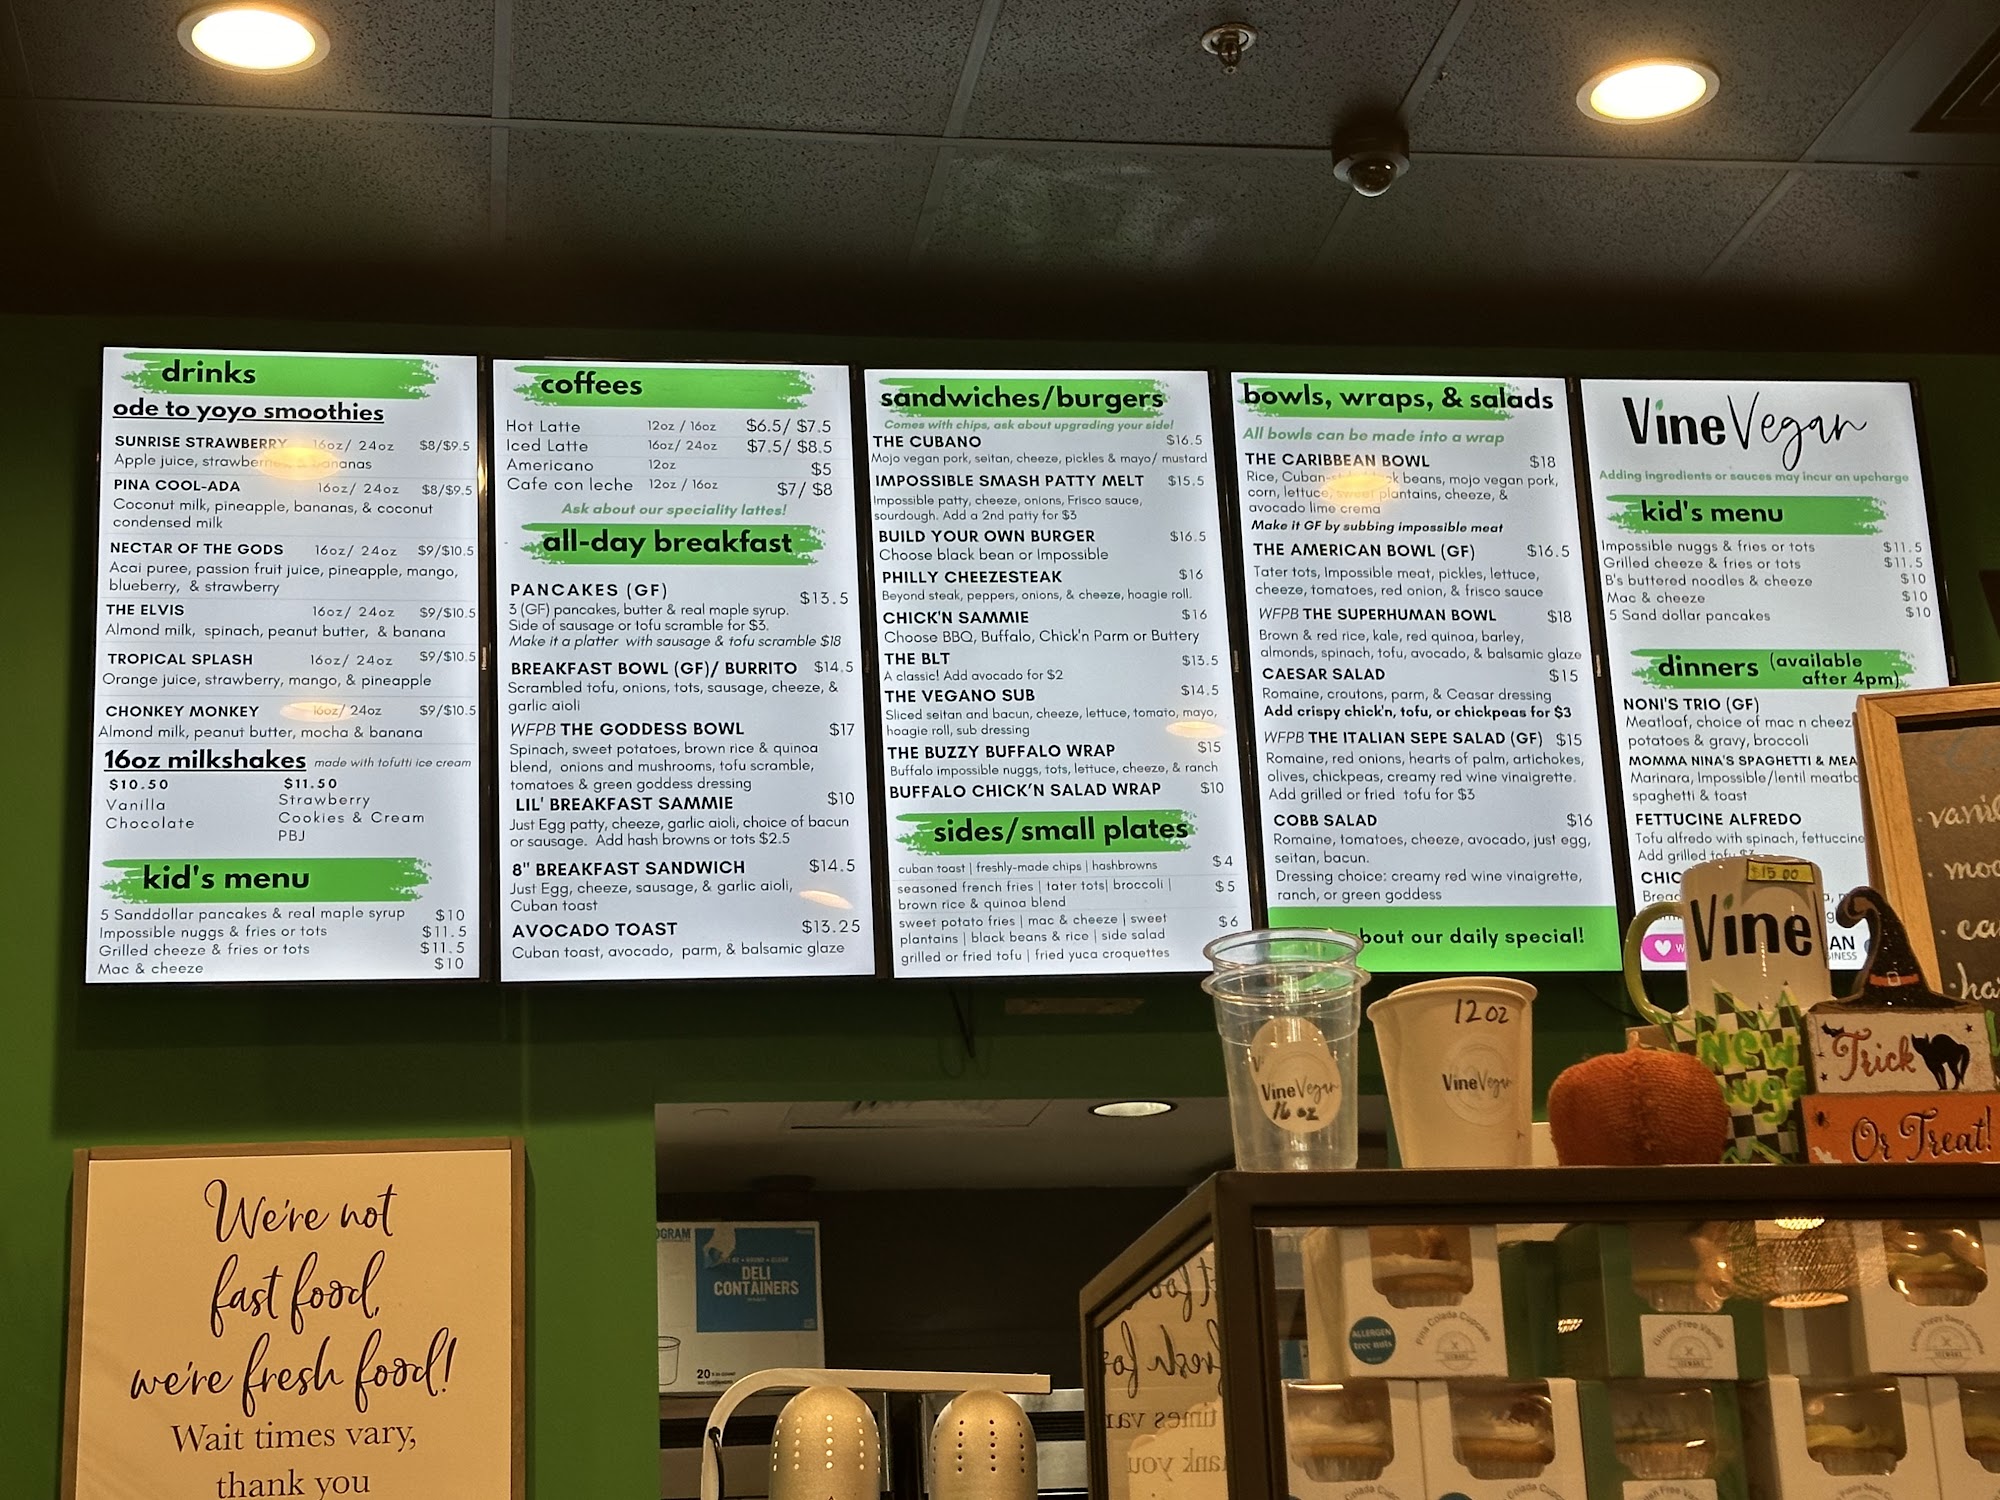 drinks
ode to yoyo smoothies
SUNRISE STRAWBERRY 16oz/ 24oz $8/$9.5
Apple juice, strawberries, & bananas
PINA COOL-ADA 16oz/ 24oz $8/$9.5
Coconut milk, pineapple, bananas, & coconut
condensed milk
NECTAR OF THE GODS 16oz/ 24oz $9/$10.5
Acai puree, passion fruit juice, pineapple, mango,
blueberry, & strawberry
THE ELVIS 16oz/ 24oz $9/$10.5
Almond milk, spinach, peanut butter, & banana
TROPICAL SPLASH 16oz/ 24oz $9/$10.5
Orange juice, strawberry, mango, & pineapple
CHONKEY MONKEY 16oz/ 24oz $9/$10.5
Almond milk, peanut butter, mocha & banana
16oz milkshakes made with tofutti ice cream
$10.50 $11.50
Vanilla Strawberry
Chocolate Cookies & Cream
PBJ
kid's menu
5 Sanddollar pancakes & real maple syrup $10
Impossible nuggs & fries or tots $11.5
Grilled cheeze & fries or tots $11.5
Mac & cheeze $10
coffees
Hot Latte 12oz / 16oz $6.5/ $7.5
Iced Latte 16oz/ 24oz $7.5/ $8.5
Americano 12oz $5
Cafe con leche 12oz / 16oz $7/ $8
Ask about our speciality lattes!
all-day breakfast
PANCAKES (GF) $13.5
3 (GF) pancakes, butter & real maple syrup.
Side of sausage or tofu scramble for $3.
Make it a platter with sausage & tofu scramble $18
BREAKFAST BOWL (GF)/ BURRITO $14.5
Scrambled tofu, onions, tots, sausage, cheeze, &
garlic aioli
WFPB THE GODDESS BOWL $17
Spinach, sweet potatoes, brown rice & quinoa
blend, onions and mushrooms, tofu scramble,
tomatoes & green goddess dressing
LIL' BREAKFAST SAMMIE $10
Just Egg patty, cheeze, garlic aioli, choice of bacun
or sausage. Add hash browns or tots $2.5
8" BREAKFAST SANDWICH $14.5
Just Egg, cheeze, sausage, & garlic aioli,
Cuban toast
AVOCADO TOAST $13.25
Cuban toast, avocado, parm, & balsamic glaze
sandwiches/burgers
Comes with chips, ask about upgrading your side!
THE CUBANO $16.5
Mojo vegan pork, seitan, cheeze, pickles & mayo/ mustard
IMPOSSIBLE SMASH PATTY MELT $15.5
Impossible patty, cheeze, onions, Frisco sauce,
sourdough. Add a 2nd patty for $3
BUILD YOUR OWN BURGER $16.5
Choose black bean or Impossible
PHILLY CHEEZESTEAK $16
Beyond steak, peppers, onions, & cheeze, hoagie roll.
CHICK'N SAMMIE $16
Choose BBQ, Buffalo, Chick'n Parm or Buttery
THE BLT $13.5
A classic! Add avocado for $2
THE VEGANO SUB $14.5
Sliced seitan and bacun, cheeze, lettuce, tomato, mayo,
hoagie roll, sub dressing
THE BUZZY BUFFALO WRAP $15
Buffalo impossible nuggs, tots, lettuce, cheeze, & ranch
BUFFALO CHICK'N SALAD WRAP $10
sides/small plates
cuban toast | freshly-made chips | hashbrowns $4
seasoned french fries | tater tots| broccoli | $5
brown rice & quinoa blend
sweet potato fries | mac & cheeze | sweet $6
plantains | black beans & rice | side salad
grilled or fried tofu | fried yuca croquettes
bowls, wraps, & salads
All bowls can be made into a wrap
THE CARIBBEAN BOWL $18
Rice, Cuban-style black beans, mojo vegan pork,
corn, lettuce, sweet plantains, cheeze, &
avocado lime crema
Make it GF by subbing impossible meat
THE AMERICAN BOWL (GF) $16.5
Tater tots, Impossible meat, pickles, lettuce,
cheeze, tomatoes, red onion, & frisco sauce
WFPB THE SUPERHUMAN BOWL $18
Brown & red rice, kale, red quinoa, barley,
almonds, spinach, tofu, avocado, & balsamic glaze
CAESAR SALAD $15
Romaine, croutons, parm, & Ceasar dressing
Add crispy chick'n, tofu, or chickpeas for $3
WFPB THE ITALIAN SEPE SALAD (GF) $15
Romaine, red onions, hearts of palm, artichokes,
olives, chickpeas, creamy red wine vinaigrette.
Add grilled or fried tofu for $3
COBB SALAD $16
Romaine, tomatoes, cheeze, avocado, just egg,
seitan, bacun.
Dressing choice: creamy red wine vinaigrette,
ranch, or green goddess
bout our daily special!
Vine Vegan
Adding ingredients or sauces may incur an upcharge
kid's menu
Impossible nuggs & fries or tots $11.5
Grilled cheeze & fries or tots $11.5
B's buttered noodles & cheeze $10
Mac & cheeze $10
5 Sand dollar pancakes $10
dinners (available
after 4pm)
NONI'S TRIO (GF)
Meatloaf, choice of mac n cheez
potatoes & gravy, broccoli
MOMMA NINA'S SPAGHETTI & MEA
Marinara, Impossible/lentil meatba
spaghetti & toast
FETTUCINE ALFREDO
Tofu alfredo with spinach, fettuccine
Add grilled tofu $3
CHIC
AN
INESS
$15.00
Vine
12oz
Vine Vegan
Vine Vegan
16 oz
New
Mugs
Trick
Or Treat!
We're not
fast food,
we're fresh food!
Wait times vary,
thank you
OGRAM
DELI
CONTAINERS
20
ALLERGEN
tree nuts
Pina Colada Cupcake
Gluten Free Vanilla